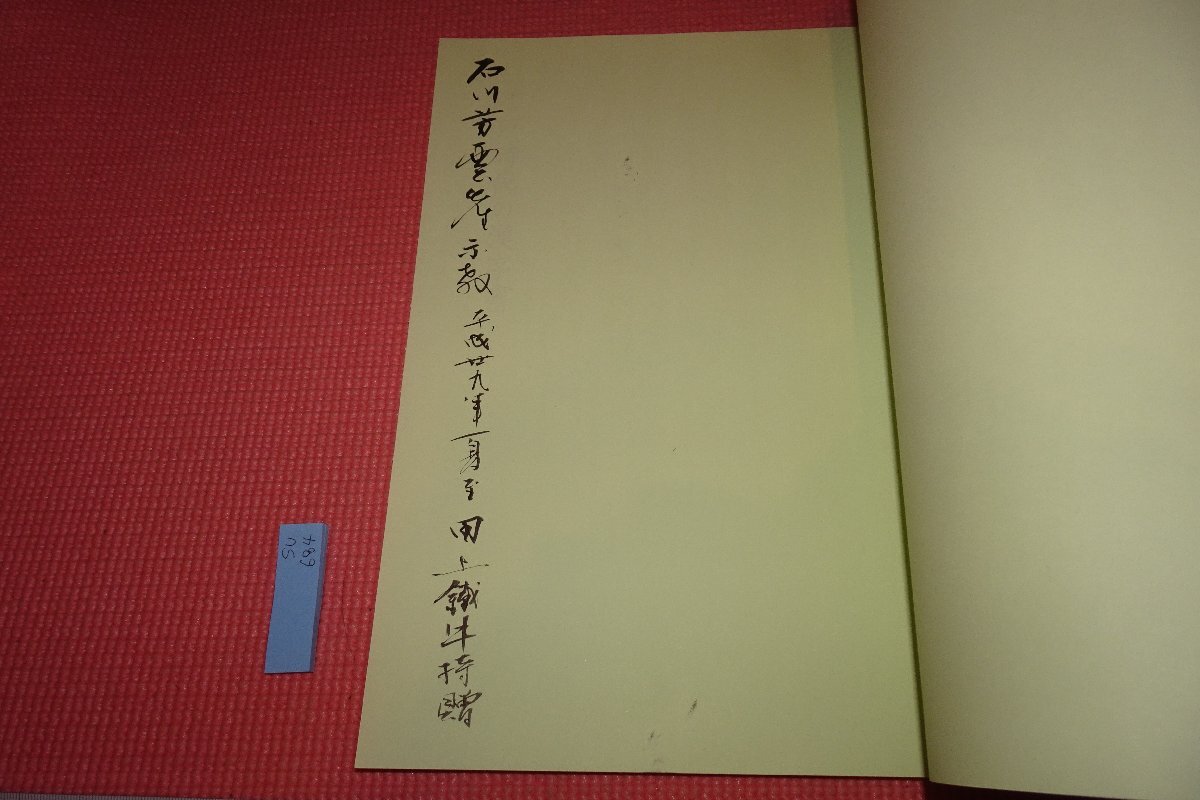 石川芳雲崖示教 平成廿九年一月至 田上鐵牛持贈
684
SU